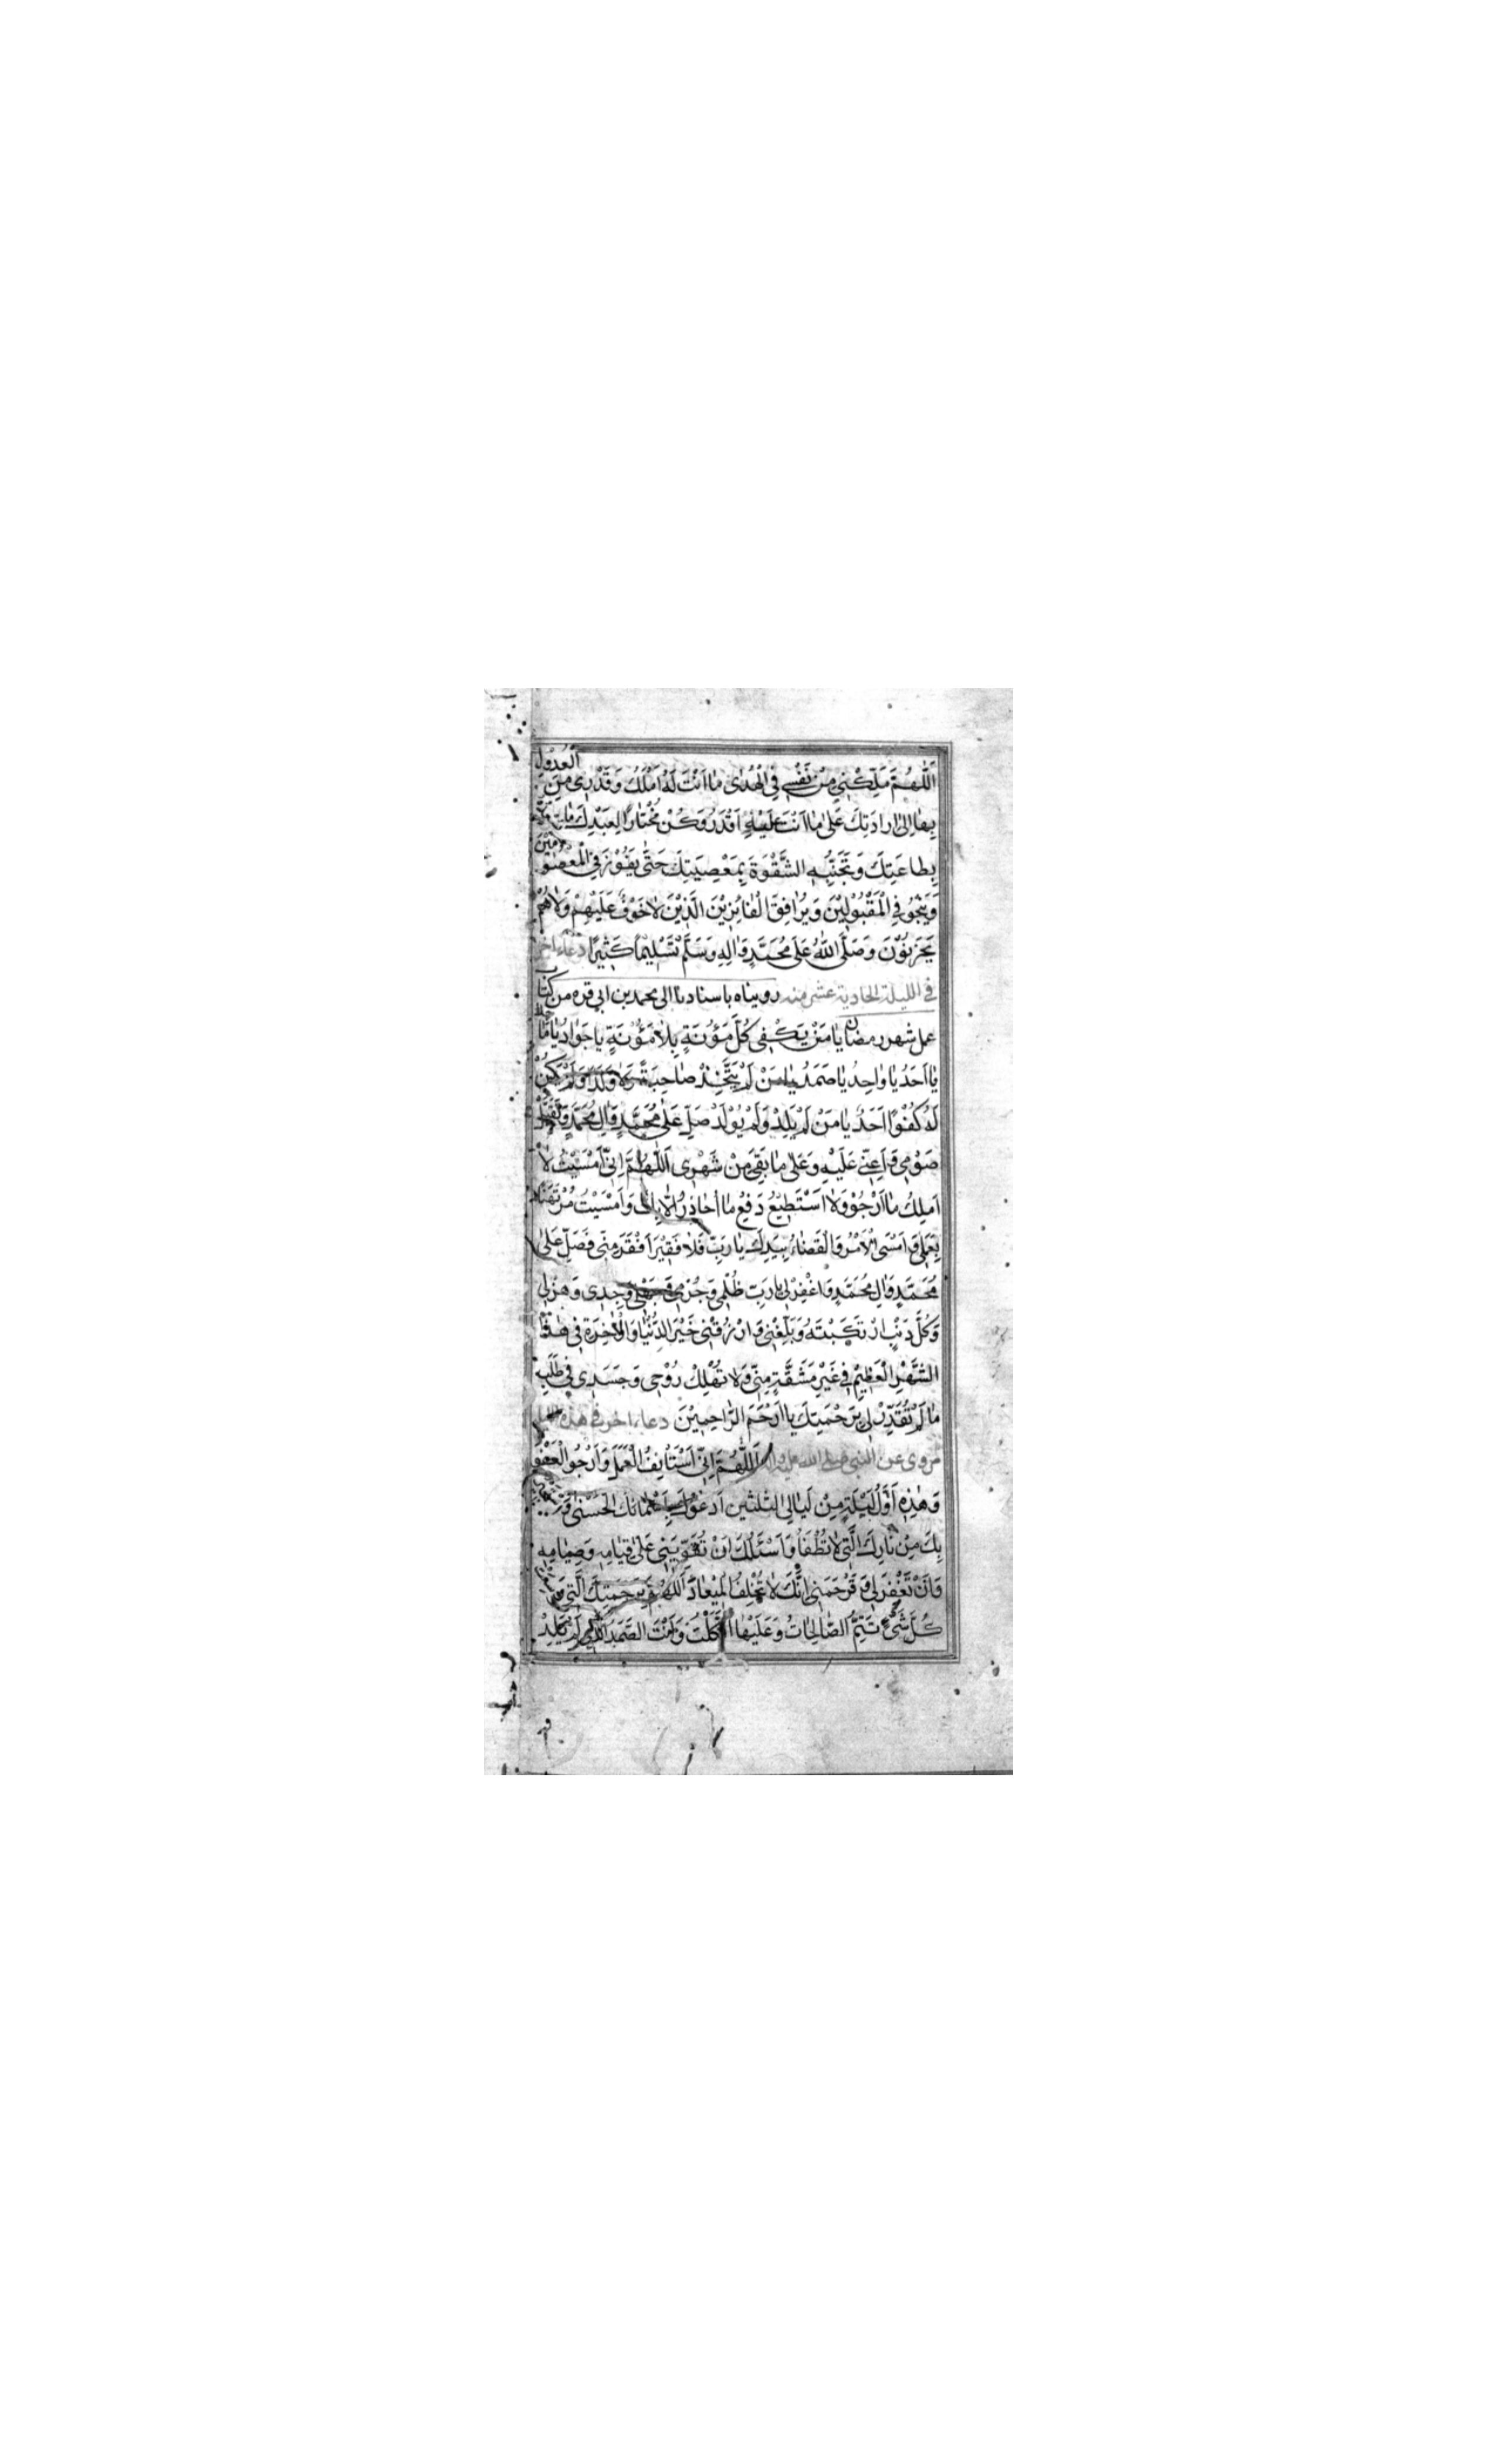 اَللّٰهُمَّ مَلِّكْنِي مِنْ نَفْسِي فِي الْهُدٰى مٰا اَنْتَ لَهُ اَمْلَكُ وَقَدِّرْنِي مِنَ الْعُدُوْلِ
بِهٰا اِلٰى اِرٰادَتِكَ عَلٰى مٰا اَنْتَ عَلَيْهِ اَقْدَرُ وَكُنْ مُخْتٰارًا لِعَبْدِكَ مٰا
بِطٰاعَتِكَ وَتَجَنُّبِهِ الشَّقْوَةَ بِمَعْصِيَتِكَ حَتّٰى يَفُوْزَ فِي الْمَعْصُوْمِيْنَ
وَيَنْجُوَ فِي الْمَقْبُوْلِيْنَ وَيُرٰافِقَ الْفٰائِزِيْنَ الَّذِيْنَ لٰا خَوْفٌ عَلَيْهِمْ وَلٰا هُمْ
يَحْزَنُوْنَ وَصَلَّى اللّٰهُ عَلٰى مُحَمَّدٍ وَاٰلِهِ وَسَلَّمَ تَسْلِيْمًا كَثِيْرًا دعاء اخر
في الليلة الحادية عشر منه رويناه باسنادنا الى محمد بن ابي قره من كتاب
عمل شهر رمضان يٰا مَنْ يَكْفِي كُلَّ مَؤُنَةٍ بِلٰا مَؤُنَةٍ يٰا جَوٰادُ يٰا مٰاجِدُ
يٰا اَحَدُ يٰا وٰاحِدُ يٰا صَمَدُ يٰا مَنْ لَمْ يَتَّخِذْ صٰاحِبَةً وَلٰا وَلَدًا وَلَمْ يَكُنْ
لَهُ كُفُوًا اَحَدٌ يٰا مَنْ لَمْ يَلِدْ وَلَمْ يُوْلَدْ صَلِّ عَلٰى مُحَمَّدٍ وَاٰلِ مُحَمَّدٍ وَتَقَبَّلْ
صَوْمِي وَاَعِنِّي عَلَيْهِ وَعَلٰى مٰا بَقِيَ مِنْ شَهْرِي اَللّٰهُمَّ اِنِّي اَمْسَيْتُ لٰا
اَمْلِكُ مٰا اَرْجُوْ وَلٰا اَسْتَطِيْعُ دَفْعَ مٰا اُحٰاذِرُ اِلّٰا بِكَ وَاَمْسَيْتُ مُرْتَهَنًا
بِعَمَلِي وَاَمْسَى الْاَمْرُ وَالْقَضٰاءُ بِيَدِكَ يٰا رَبِّ فَلٰا فَقِيْرَ اَفْقَرُ مِنِّي فَصَلِّ عَلٰى
مُحَمَّدٍ وَاٰلِ مُحَمَّدٍ وَاغْفِرْ لِي يٰا رَبِّ ظُلْمِي وَجُرْمِي وَجَهْلِي وَجِدِّي وَهَزْلِي
وَكُلَّ ذَنْبٍ ارْتَكَبْتُهُ وَبَلِّغْنِي وَارْزُقْنِي خَيْرَ الدُّنْيٰا وَالْاٰخِرَةِ فِي هٰذَا
الشَّهْرِ الْعَظِيْمِ فِي غَيْرِ مَشَقَّةٍ مِنِّي وَلٰا تُهْلِكْ رُوْحِي وَجَسَدِي فِي طَلَبِ
مٰا لَمْ تُقَدِّرْ لِي بِرَحْمَتِكَ يٰا اَرْحَمَ الرّٰاحِمِيْنَ دعاء اخر في هذه الليلة
مروي عن النبي صلى الله عليه واله اَللّٰهُمَّ اِنِّي اَسْتَاْنِفُ الْعَمَلَ وَاَرْجُو الْعَفْوَ
وَهٰذِهِ اَوَّلُ لَيْلَةٍ مِنْ لَيٰالِي الثلثين اَدْعُوْكَ بِاَسْمٰائِكَ الْحُسْنٰى
بِكَ مِنْ نٰارِكَ الَّتِي لٰا تُطْفَاُ وَاَسْئَلُكَ اَنْ تُقَوِّيَنِي عَلٰى قِيٰامِهِ وَصِيٰامِهِ
وَاَنْ تَغْفِرَ لِي وَتَرْحَمَنِي اِنَّكَ لٰا تُخْلِفُ الْمِيْعٰادَ اَللّٰهُمَّ بِرَحْمَتِكَ الَّتِي
كُلَّ شَيْءٍ تَتِمُّ الصّٰالِحٰاتُ وَعَلَيْهَا اتَّكَلْتُ وَاَنْتَ الصَّمَدُ الَّذِي لَمْ يَلِدْ